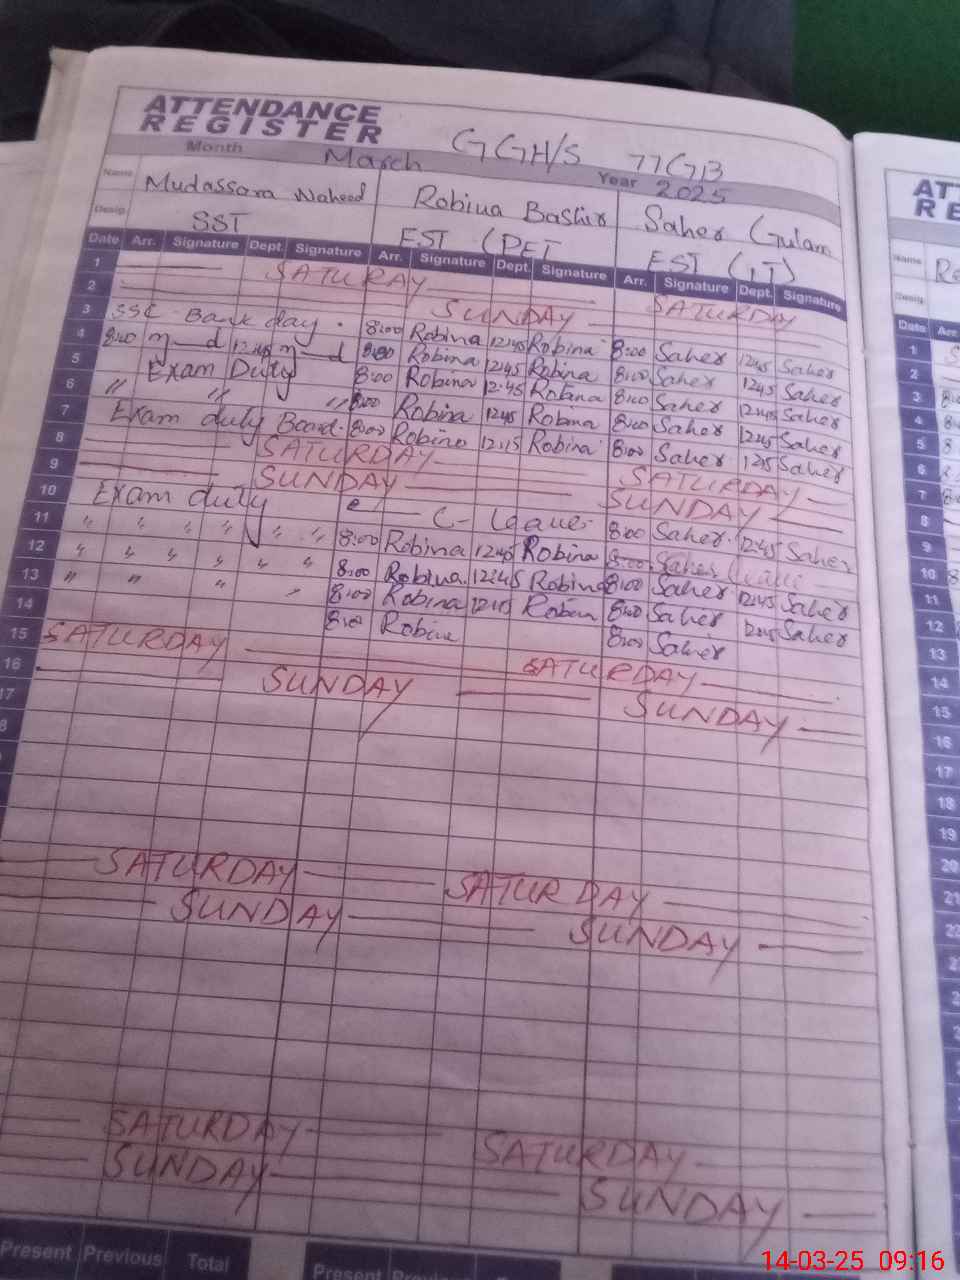 ATTENDANCE
REGISTER
GGH/S 77GB
Month March Year 2025
Name Mudassara Naheed Robina Bashir Saher Gulam
Desig. SST EST (PET EST (IT)
Date Arr. Signature Dept. Signature Arr. Signature Dept. Signature Arr. Signature Dept. Signature
1 SATURAY SATURDAY
2 SUNDAY
3 SSC Bank day. 8:00 Robina 12:45 Robina 8:00 Saher 12:45 Saher
4 8:00 12:45 8:00 Robina 12:45 Robina 8:00 Saher 12:45 Saher
5 Exam Duty 8:00 Robina 12:45 Robina 8:00 Saher 12:45 Saher
6 " " " 8:00 Robina 12:45 Robina 8:00 Saher 12:45 Saher
7 Exam duty Board. 8:00 Robina 12:15 Robina 8:00 Saher 12:15 Saher
8 SATURDAY SATURDAY
9 SUNDAY SUNDAY
10 Exam duty C- Leave 8:00 Saher 12:45 Saher
11 " " " " " " 8:00 Robina 12:45 Robina 8:00 Saher
12 " " " " " " 8:00 Robina 12:45 Robina 8:00 Saher 12:45 Saher
13 " " " " 8:00 Robina Robina 8:00 Saher 12:45 Saher
14 8:00 Robina 8:00 Saher
15 SATURDAY SATURDAY
16 SUNDAY SUNDAY
17
SATURDAY SATURDAY
SUNDAY SUNDAY
SATURDAY SATURDAY
SUNDAY SUNDAY
Present Previous Total Present
Name
Desig.
Date Arr
1
2
3
4
5
6
7
8
9
10
11
12
13
14
15
16
17
18
19
20
21
22
14-03-25 09:16